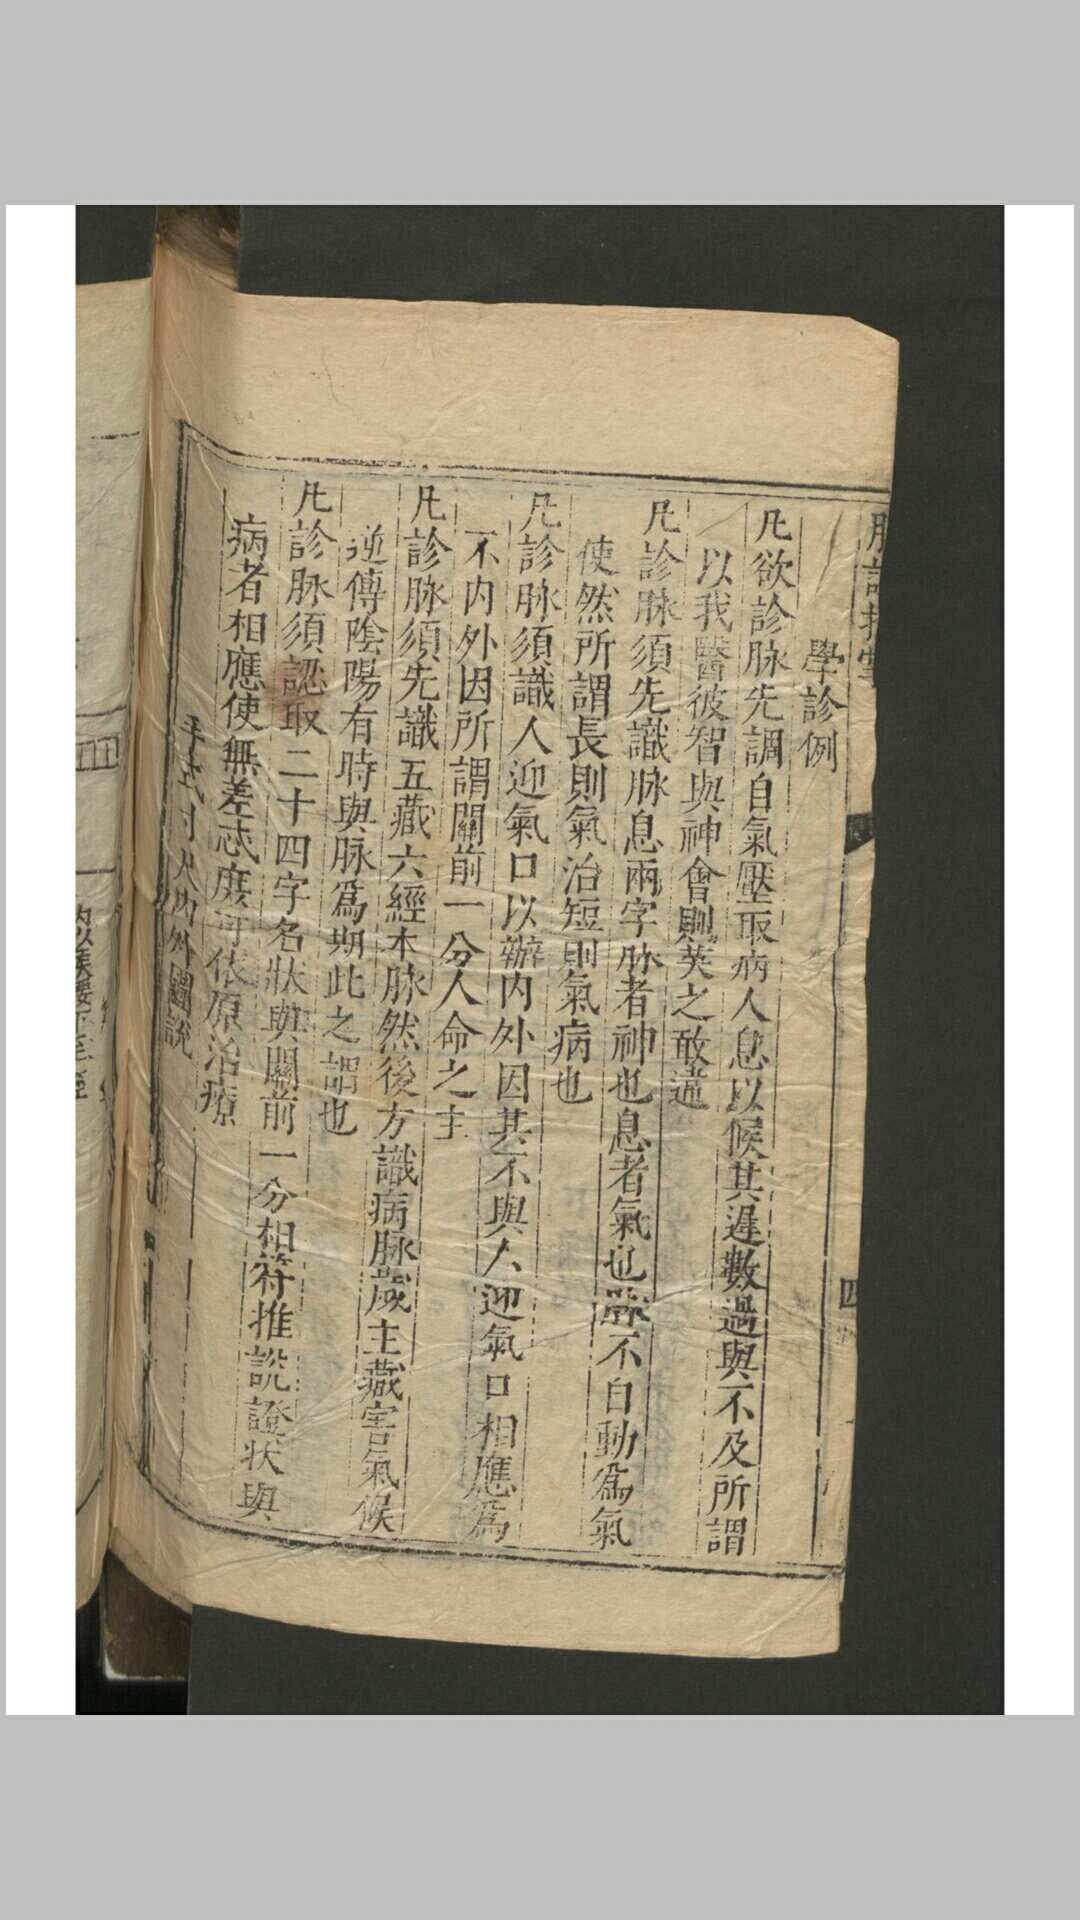 學診例
凡欲診脉先調自氣壓取病人息以候其遲數過與不及所謂
以我醫彼智與神會則莫之敢違
凡診脉須先識脉息兩字脉者神也息者氣也脉不自動為氣
使然所謂長則氣治短則氣病也
凡診脉須識人迎氣口以辨内外因其不與人迎氣口相應為
不内外因所謂關前一分人命之主
凡診脉須先識五藏六經本脉然後方識病脉歲主藏害氣候
逆傳陰陽有時與脉爲期此之謂也
凡診脉須認取二十四字名狀與關前一分相符推說證狀與
病者相應使無差忒庶可依原治療
手式寸尺内外圖說
四